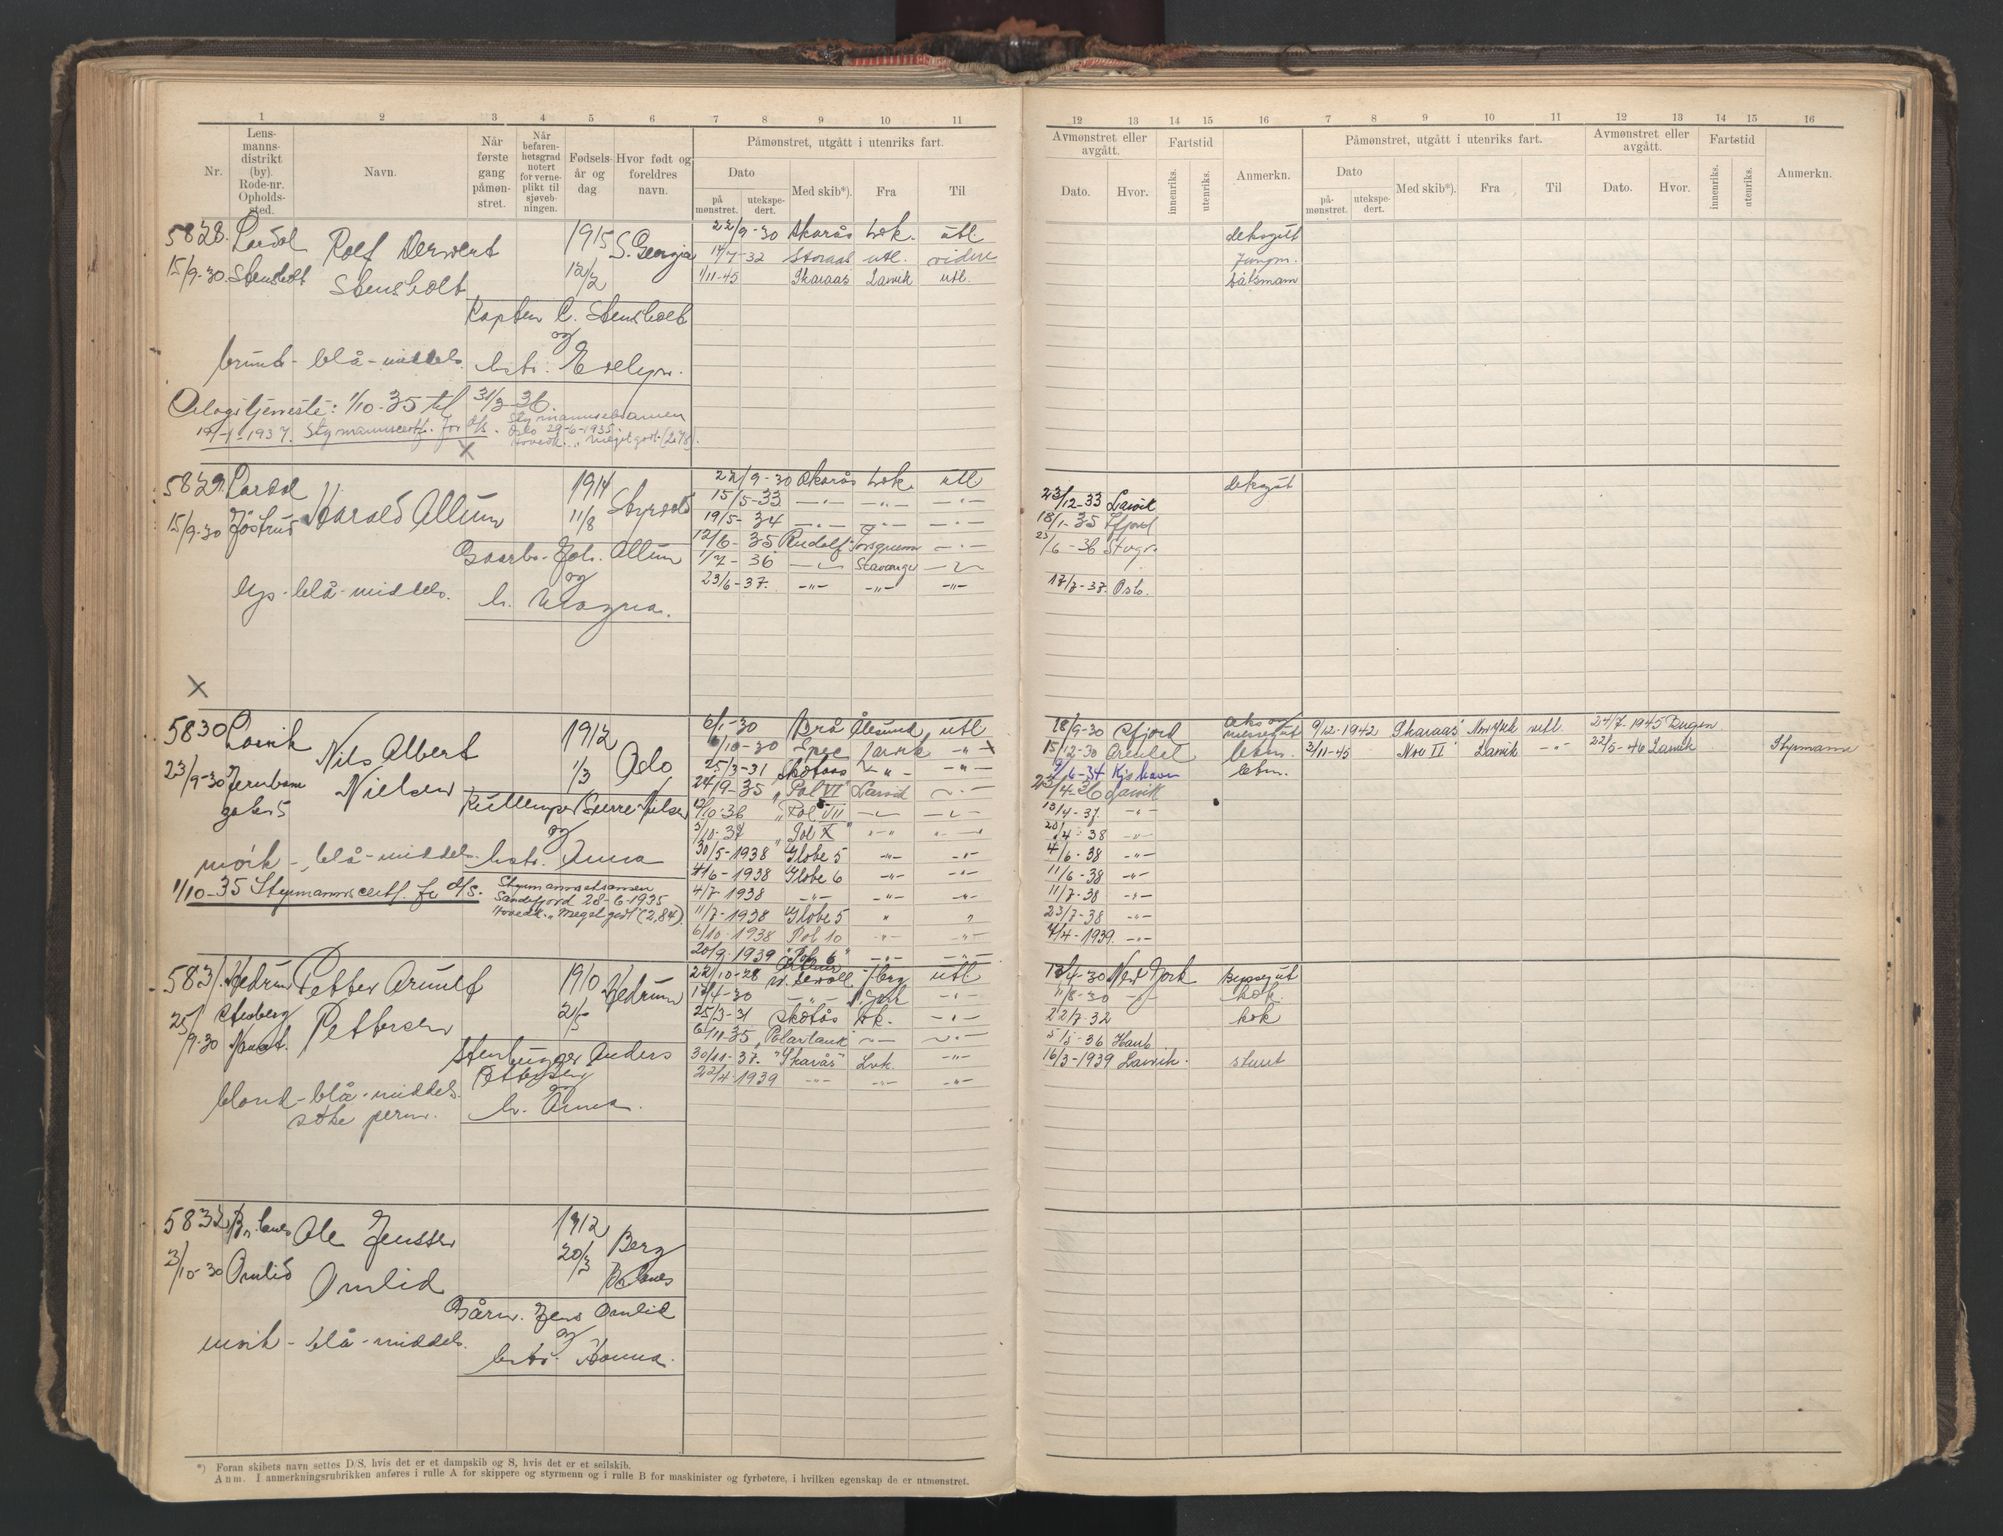 1 2 3 4 5 6 7 8 9 10 11
Nr.
Lens-
manns-
distrikt
(by).
Rode-nr.
Opholds-
sted.
Navn.
Når
første
gang
påmøn-
stret.
Når
befaren-
hetsgrad
notert
for verne-
plikt til
sjøveb-
ningen.
Fødsels-
år og
dag.
Hvor født og
foreldres
navn.
Påmønstret, utgått i utenriks fart.
Dato
på
mønstret.
utekspe-
dert.
Med skib*).
Fra
Til
12 13 14 15 16 7 8 9 10 11 12 13 14 15 16
Avmønstret eller
avgått.
Dato.
Hvor.
Fartstid
innenriks.
utenriks.
Anmerkn.
Påmønstret, utgått i utenriks fart.
Dato
på
mønstret.
utekspe-
dert.
Med skib*).
Fra
Til
Avmønstret eller
avgått.
Dato.
Hvor.
Fartstid
innenriks.
utenriks.
Anmerkn.
5828. Lardal Rolf Derwent 1915 S. Georgia 22/9-30 Skarås Lvk. utl. deksgut
15/9-30 Stensholt Stensholt 12/2 14/7-32 Storaas utl. videre Jungm.
1/11-45 Skaraas Larvik utl. båtsmann
Kaptein C. Stensholt
og
brunt-blå-middels. hstr. Evelyn.
Oplagstjeneste: 1/10-35 til 31/3-36.
Styrmannscertf. for d/s. Styrmannseksamen
Oslo 29-6-1935.
Hovedk. „Meget godt (2,78).
5829. Lardal Harald Allum 1914 Styrvold 22/9-30 Skarås Lvk. utl deksgut
15/9-30 Jøstrud 11/8 15/5-33 23/12-33 Larvik
19/5-34 18/1-35 Sfjord
Gaarbr. Joh. Allum 12/6-35 Rudolf
og 1/7-36 Stavanger
lys-blå-middels. h. Magna. 23/6-37. -"- -"- -"- 17/7-37. Oslo.
5830 Larvik Nils Albert Nielsen 1912 Oslo 6/1-30 Brå Ålesund utl 18/9-30 Sfjord 9/12-1942 Skaraas New York utl. 24/7-1945 Bergen
23/9-30 1/3 /10-30 Larvik 15/12-30 Arendal letm. 3/11-45 Nor II Larvik -"- 22/5-46 Larvik Styrmann
25/3-31 Skotaas 9/6-34 Kjøbhavn letm.
24/9-35 „Pol VI" Larvik 23/4-36 Larvik
12/10-36 „Pol VII 13/4-37.
5/10-37 „Pol X" 20/4-38
30/5-1938 Globe 5 4/6-38
mørk-blå-middels. hstr. Anna 4/6-1938 Globe 6 11/6-38
1/10-35 Styrmannscertf. for d/s. Styrmannseksamen
Sandefjord 28-6-1935
Hovedk. „Meget godt" (2,84). 4/7-1938 11/7-38
11/7-1938 Globe 5 23/7-38
6/10-1938 Pol 10 7/4-1939.
20/9-1939 "Pol 6"
5831. Hedrum Petter Arnulf Pettersen 1910 Hedrum 22/10-28 utl 12/4-30 New York byssegut
25/9-30 2/5 12/4-30 N. York 11/8-30 kok.
25/3-31 Skotås Lvk. 22/7-32 kok
6/11-35 „Polartank" 5/5-36 Hamb
Stenhugger Anders Pettersen 30/11-37. "Skarås" Lvk. 16/3-1939 Larvik. stuert
og 22/4-1939
blond-blå-middels. h. Anna.
5832 Br.lanes Ole Jenssen 1912 Berg
3/10-30 Omlid Omlid 20/3 Br.lanes
Gårbr. Jens Omlid
og
mørk-blå-middels. hstr. Hanna.
*) Foran skibets navn settes D/S, hvis det er et dampskib og S, hvis det er et seilskib.
Anm. I anmerkningsrubrikken anføres i rulle A for skippere og styrmenn og i rulle B for maskinister og fyrbøtere, i hvilken egenskap de er utmønstret.